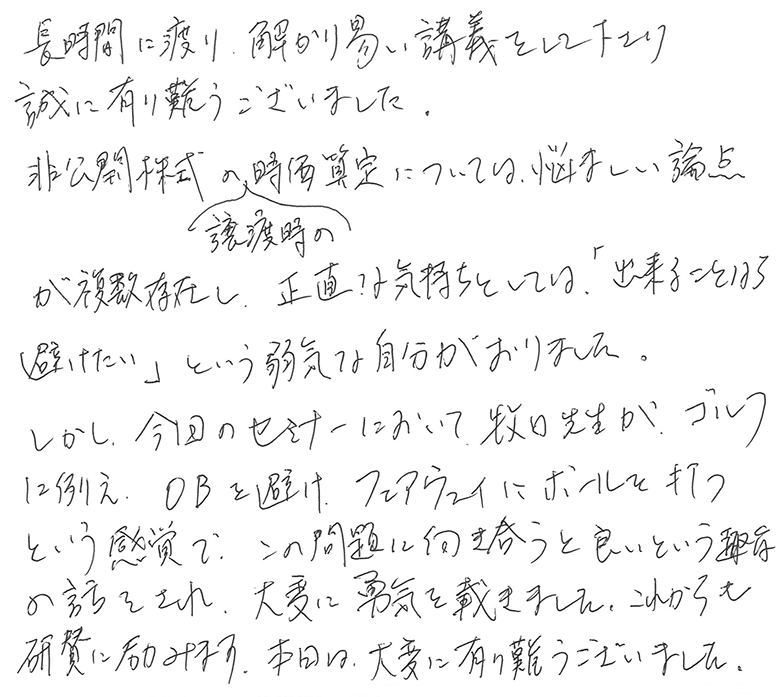 長時間に渡り、解かり易い講義をして下さり
誠に有り難うございました。
非公開株式の時価算定については、悩ましい論点
譲渡時の
が複数存在し、正直な気持ちとしては、「出来ることなら
避けたい」という弱気な自分がおりました。
しかし、今回のセミナーにおいて、牧口先生が、ゴルフ
に例え、OBを避け、フェアウェイにボールを打つ
という感覚で、この問題に向き合うと良いという趣旨
の話をされ、大変に勇気を載きました。これからも
研賛に励みます。本日は、大変に有り難うございました。